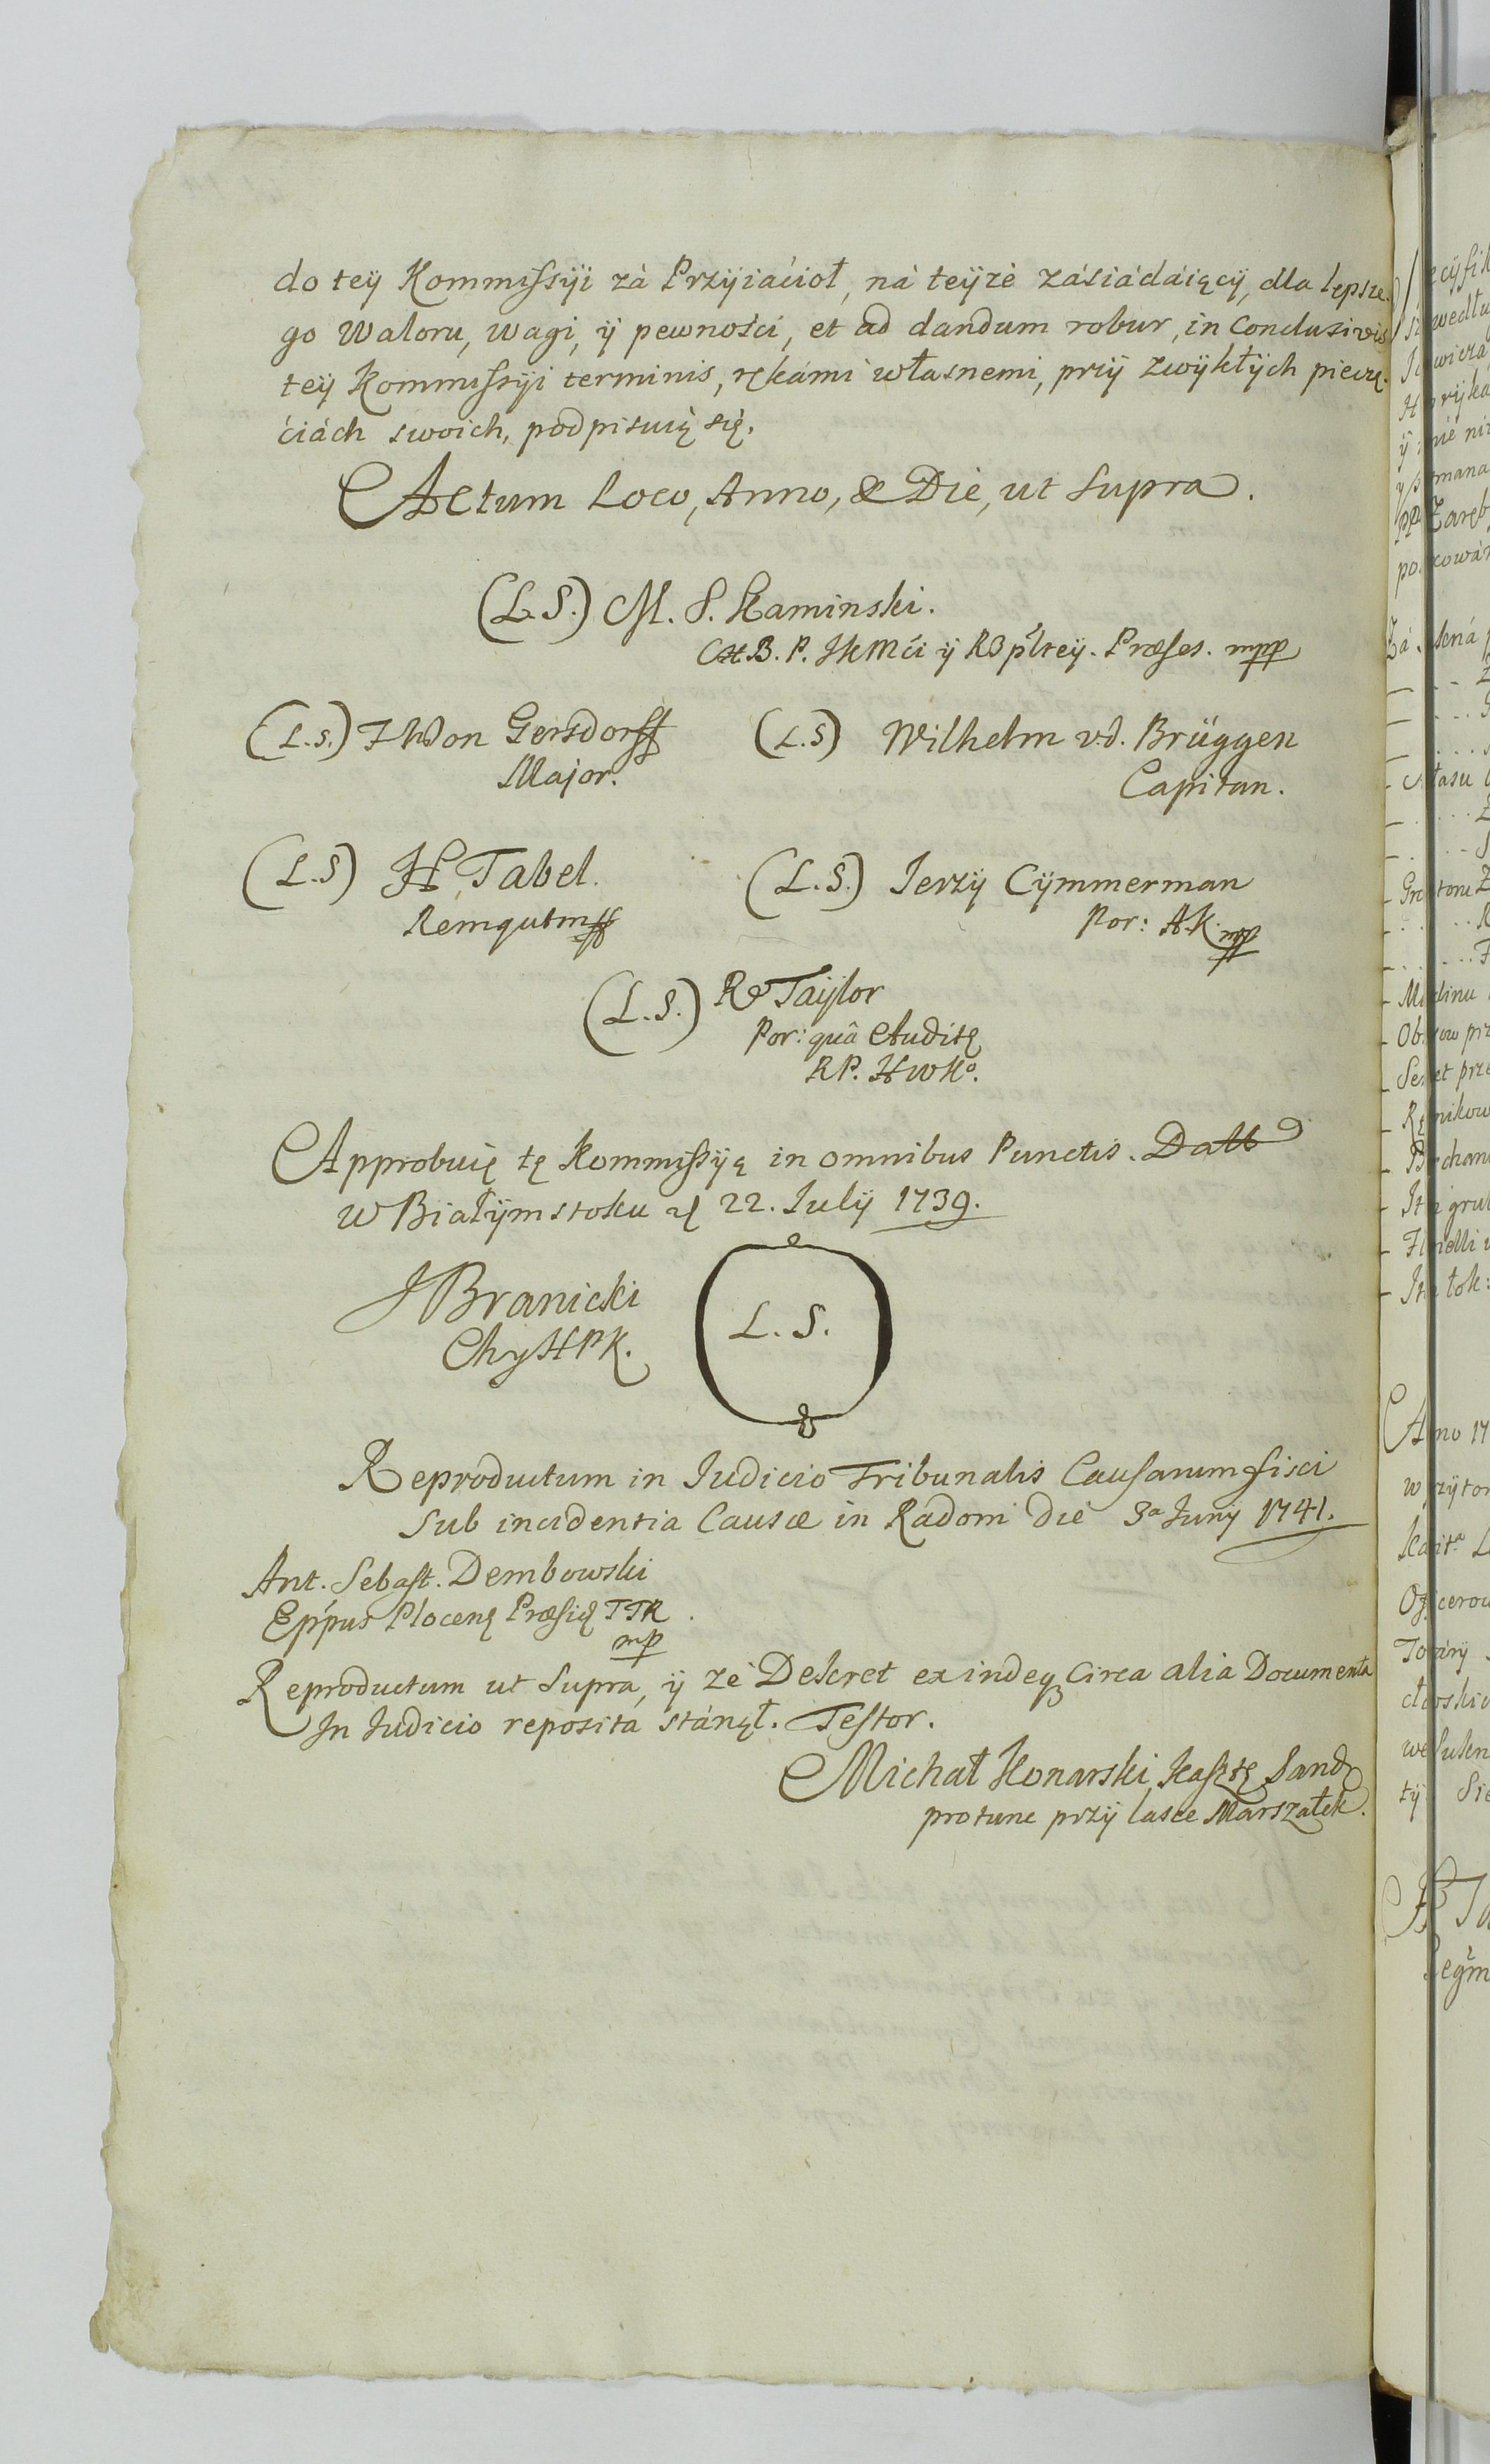 do teÿ Kommissÿi zá Przÿiáćioł, ná teÿże zásiádáiącÿ, dla lepsze-
go Waloru, wagi, ÿ pewnośći, et ad dandum robur, in Conclusivis
teÿ Kommissÿi terminis, rękámi własnemi, przÿ zwÿkłÿch pieczę-
ćiách swoich, podpisuię się.
Actum Loco, Anno, & Die, ut Supra.
(L.S.) M. S. Kaminski.
B. P. JKMći ÿ RBpltey. Præses. mpp
(L.S.) Von Gersdorff
Major.
(L.S) Wilhelm v.d. Brüggen
Capitan.
(L.S) H Tabel.
(L.S.) Jerzÿ Cÿmmerman
Por: AK. mpp
(L.S.) R Taÿlor
Por: quâ Auditę
RP. HWKo.
Approbuię tę Kommissÿą in omnibus Punctis. Datt
w Białÿmstoku d 22. Julÿ 1739.
JBranicki
ChyHPK.
L. S.
Reproductum in Judicio Tribunalis Causarum fisci
Sub incidentia Causæ in Radom die 3a Junÿ 1741.
Ant. Sebast. Dembowski
Eppus Plocenę Præsię TTR.
mp
Reproductum ut Supra, ÿ że Dekret exindeq Circa alia Documenta
In Judicio reposita stánął. Testor.
Michał Konarski Kasztę Sand
protunc przÿ lasce Marszałek.